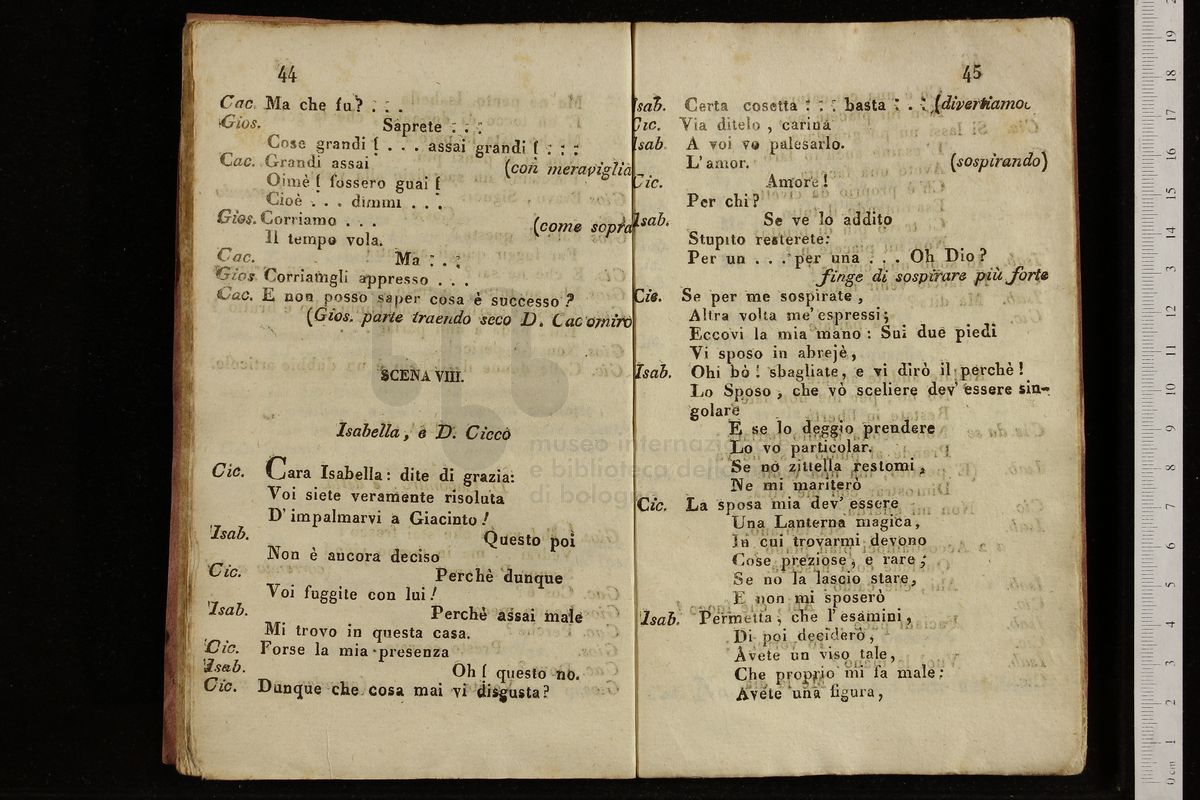 44
Cac. Ma che fu? . . .
Gios. Saprete . . .
Cose grandi! . . . assai grandi! . . .
Cac. Grandi assai (con meraviglia
Oimè! fossero guai!
Cioè . . . dimmi . . .
Gios. Corriamo . . . (come sopra
Il tempo vola.
Cac. Ma . . .
Gios Corriamgli appresso . . .
Cac. E non posso saper cosa è successo?
(Gios. parte traendo seco D. Cacomiro
SCENA VIII.
Isabella, e D. Cicco
Cic. Cara Isabella: dite di grazia:
Voi siete veramente risoluta
D' impalmarvi a Giacinto!
Isab. Questo poi
Non è ancora deciso
Cic. Perchè dunque
Voi fuggite con lui!
Isab. Perchè assai male
Mi trovo in questa casa.
Cic. Forse la mia presenza
Isab. Oh! questo no.
Cic. Dunque che cosa mai vi disgusta?
45
Isab. Certa cosetta . . . basta . . . (divertiamoc
Cic. Via ditelo, carina
Isab A voi vo palesarlo.
L'amor. (sospirando)
Cic. Amore!
Per chi?
Isab. Se ve lo addito
Stupito resterete:
Per un . . . per una . . . Oh Dio?
finge di sospirare più forte
Cic. Se per me sospirate,
Altra volta me' espressi;
Eccovi la mia mano: Sui due piedi
Vi sposo in abrejè,
Isab. Ohi bò! sbagliate, e vi dirò il perchè!
Lo Sposo, che vò sceliere dev' essere sin-
golare
E se lo deggio prendere
Lo vo particolar.
Se no zittella restomi,
Ne mi mariterò
Cic. La sposa mia dev' essere
Una Lanterna magica,
In cui trovarmi devono
Cose preziose, e rare;
Se no la lascio stare,
E non mi sposerò
Isab. Permetta, che l'esamini,
Di poi deciderò,
Avete un viso tale,
Che proprio mi fa male:
Avete una figura,
museo internazio
e biblioteca della
di bologna
0 cm 1 2 3 4 5 6 7 8 9 10 11 12 13 14 15 16 17 18 19